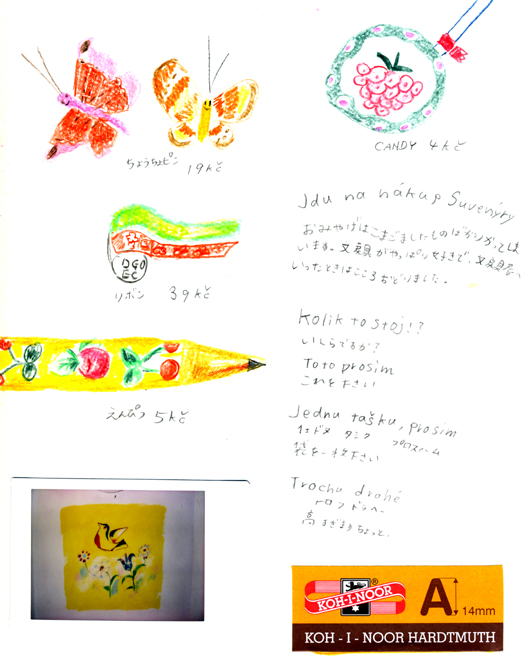 ちょうちょピン 19Kč
CANDY 4Kč
リボン 39Kč
えんぴつ 5Kč
Jdu na nákup Suvenýry
おみやげはこまごましたものばかりかってしま
います。文房具がやっぱり好きで、文房具屋に
いったときはこころおどりました。
Kolik to stojí?
いくらですか?
Toto prosím
これを下さい
Jednu tašku, prosím
イェドヌ タシク プロスィーム
袋を一枚下さい
Trochu drahé
トロフ ドラヘー
高すぎますちょっと。
KOH-I-NOOR ®
A 14mm
KOH - I - NOOR HARDTMUTH